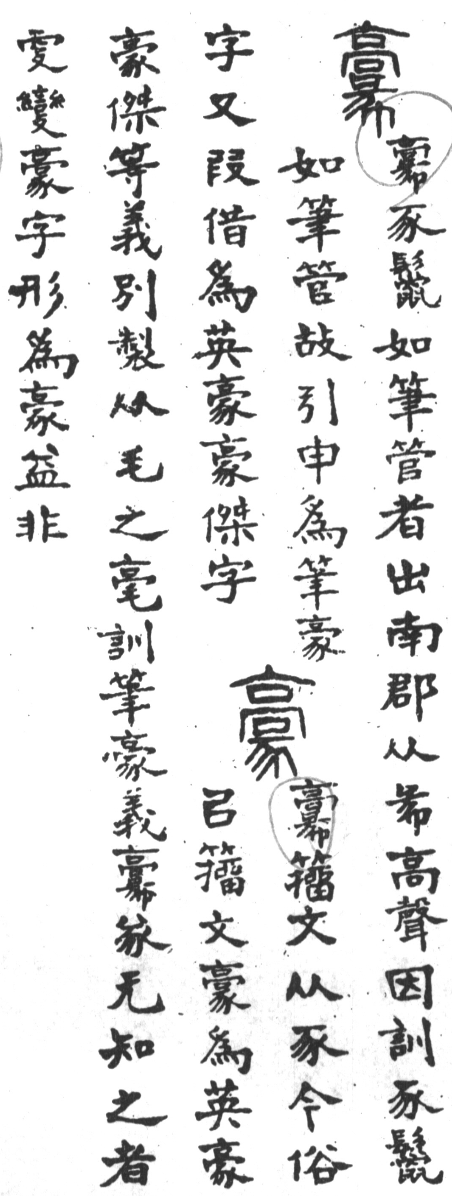 𩫕 𩫕豕鬣如筆管者出南郡从㣇高聲因訓豕鬣
如筆管故引申為筆豪
字又叚借為英豪豪傑字
豪 𩫕籀文从豕今俗
㠯籀文豪為英豪
豪傑等義別製从毛之毫訓筆豪義𩫕㒸无知之者
變豪字形為豪益非